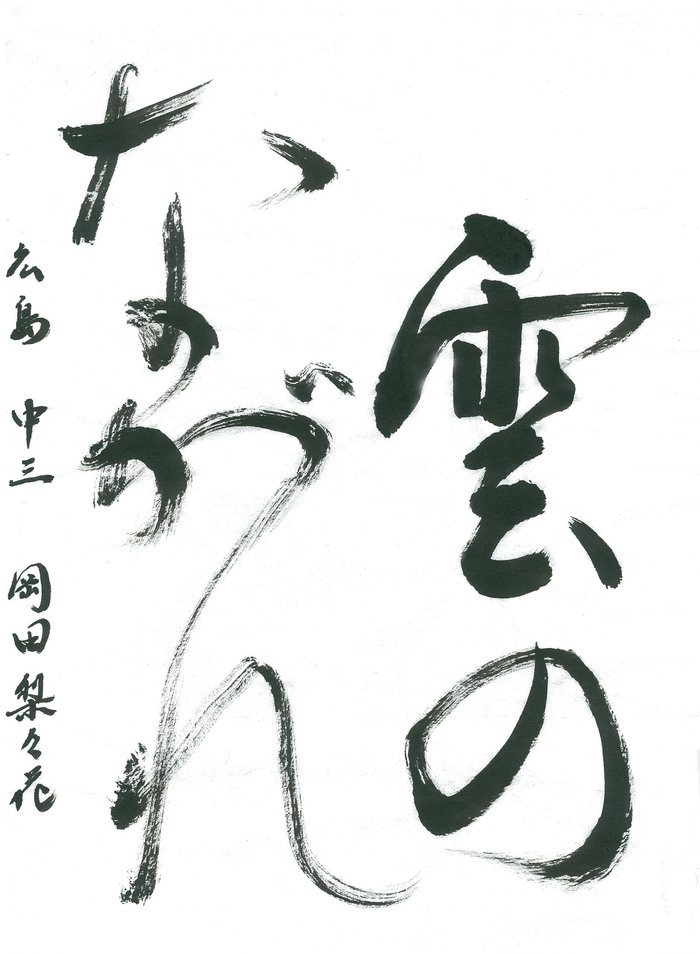 雲の
ながれ
広島 中三 岡田梨々花